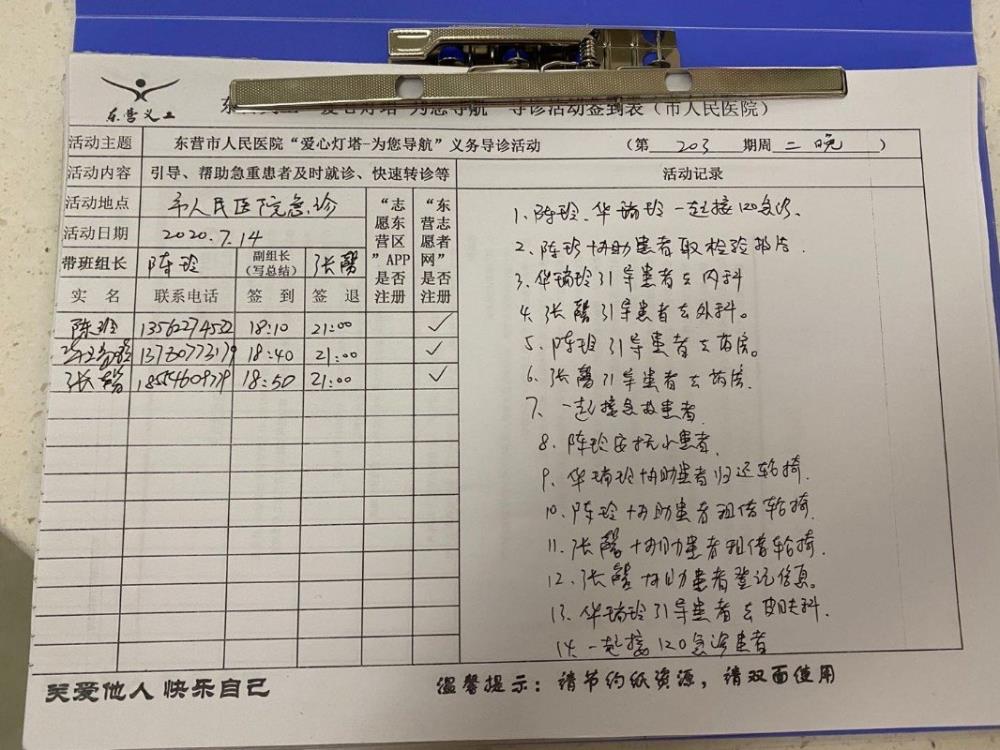 东营义工
爱心灯塔-为您导航 导诊活动签到表（市人民医院）
活动主题 东营市人民医院“爱心灯塔-为您导航”义务导诊活动 （第 203 期周 二 晚 ）
活动内容 引导、帮助急重患者及时就诊、快速转诊等 活动记录
活动地点 市人民医院急诊
活动日期 2020.7.14
带班组长 陈玲 副组长（写总结） 张馨
“志愿东营区”APP是否注册
“东营志愿者网”是否注册
实 名 联系电话 签 到 签 退
陈玲 18:10 21:00 ✓
华瑞玲 18:40 21:00 ✓
张馨 18:50 21:00 ✓
1、陈玲、华瑞玲一起接120急诊.
2、陈玲协助患者取检验报告.
3、华瑞玲引导患者去内科
4、张馨引导患者去外科。
5、陈玲引导患者去药房。
6、张馨引导患者去药房.
7、一起接急救患者.
8、陈玲安抚小患者.
9、华瑞玲协助患者归还轮椅.
10、陈玲协助患者租借轮椅.
11、张馨协助患者租借轮椅.
12、张馨协助患者登记信息。
13、华瑞玲引导患者去皮肤科.
14、一起接120急诊患者
关爱他人 快乐自己
温馨提示：请节约纸资源，请双面使用